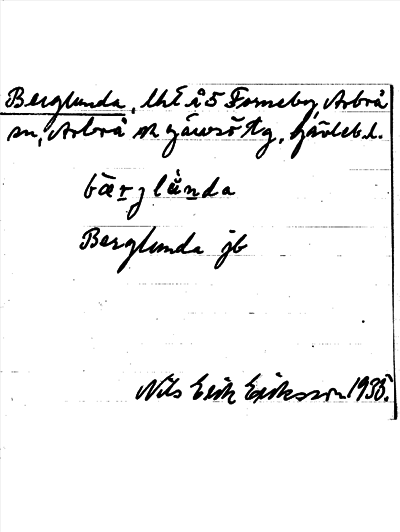 Berglunda, lht å 5 Forneby, Arbrå
sn, Arbrå o Järvsö tg, Gävleb.l.
bærglùnda
Berglunda jb
Nils Erik Eriksson 1935.